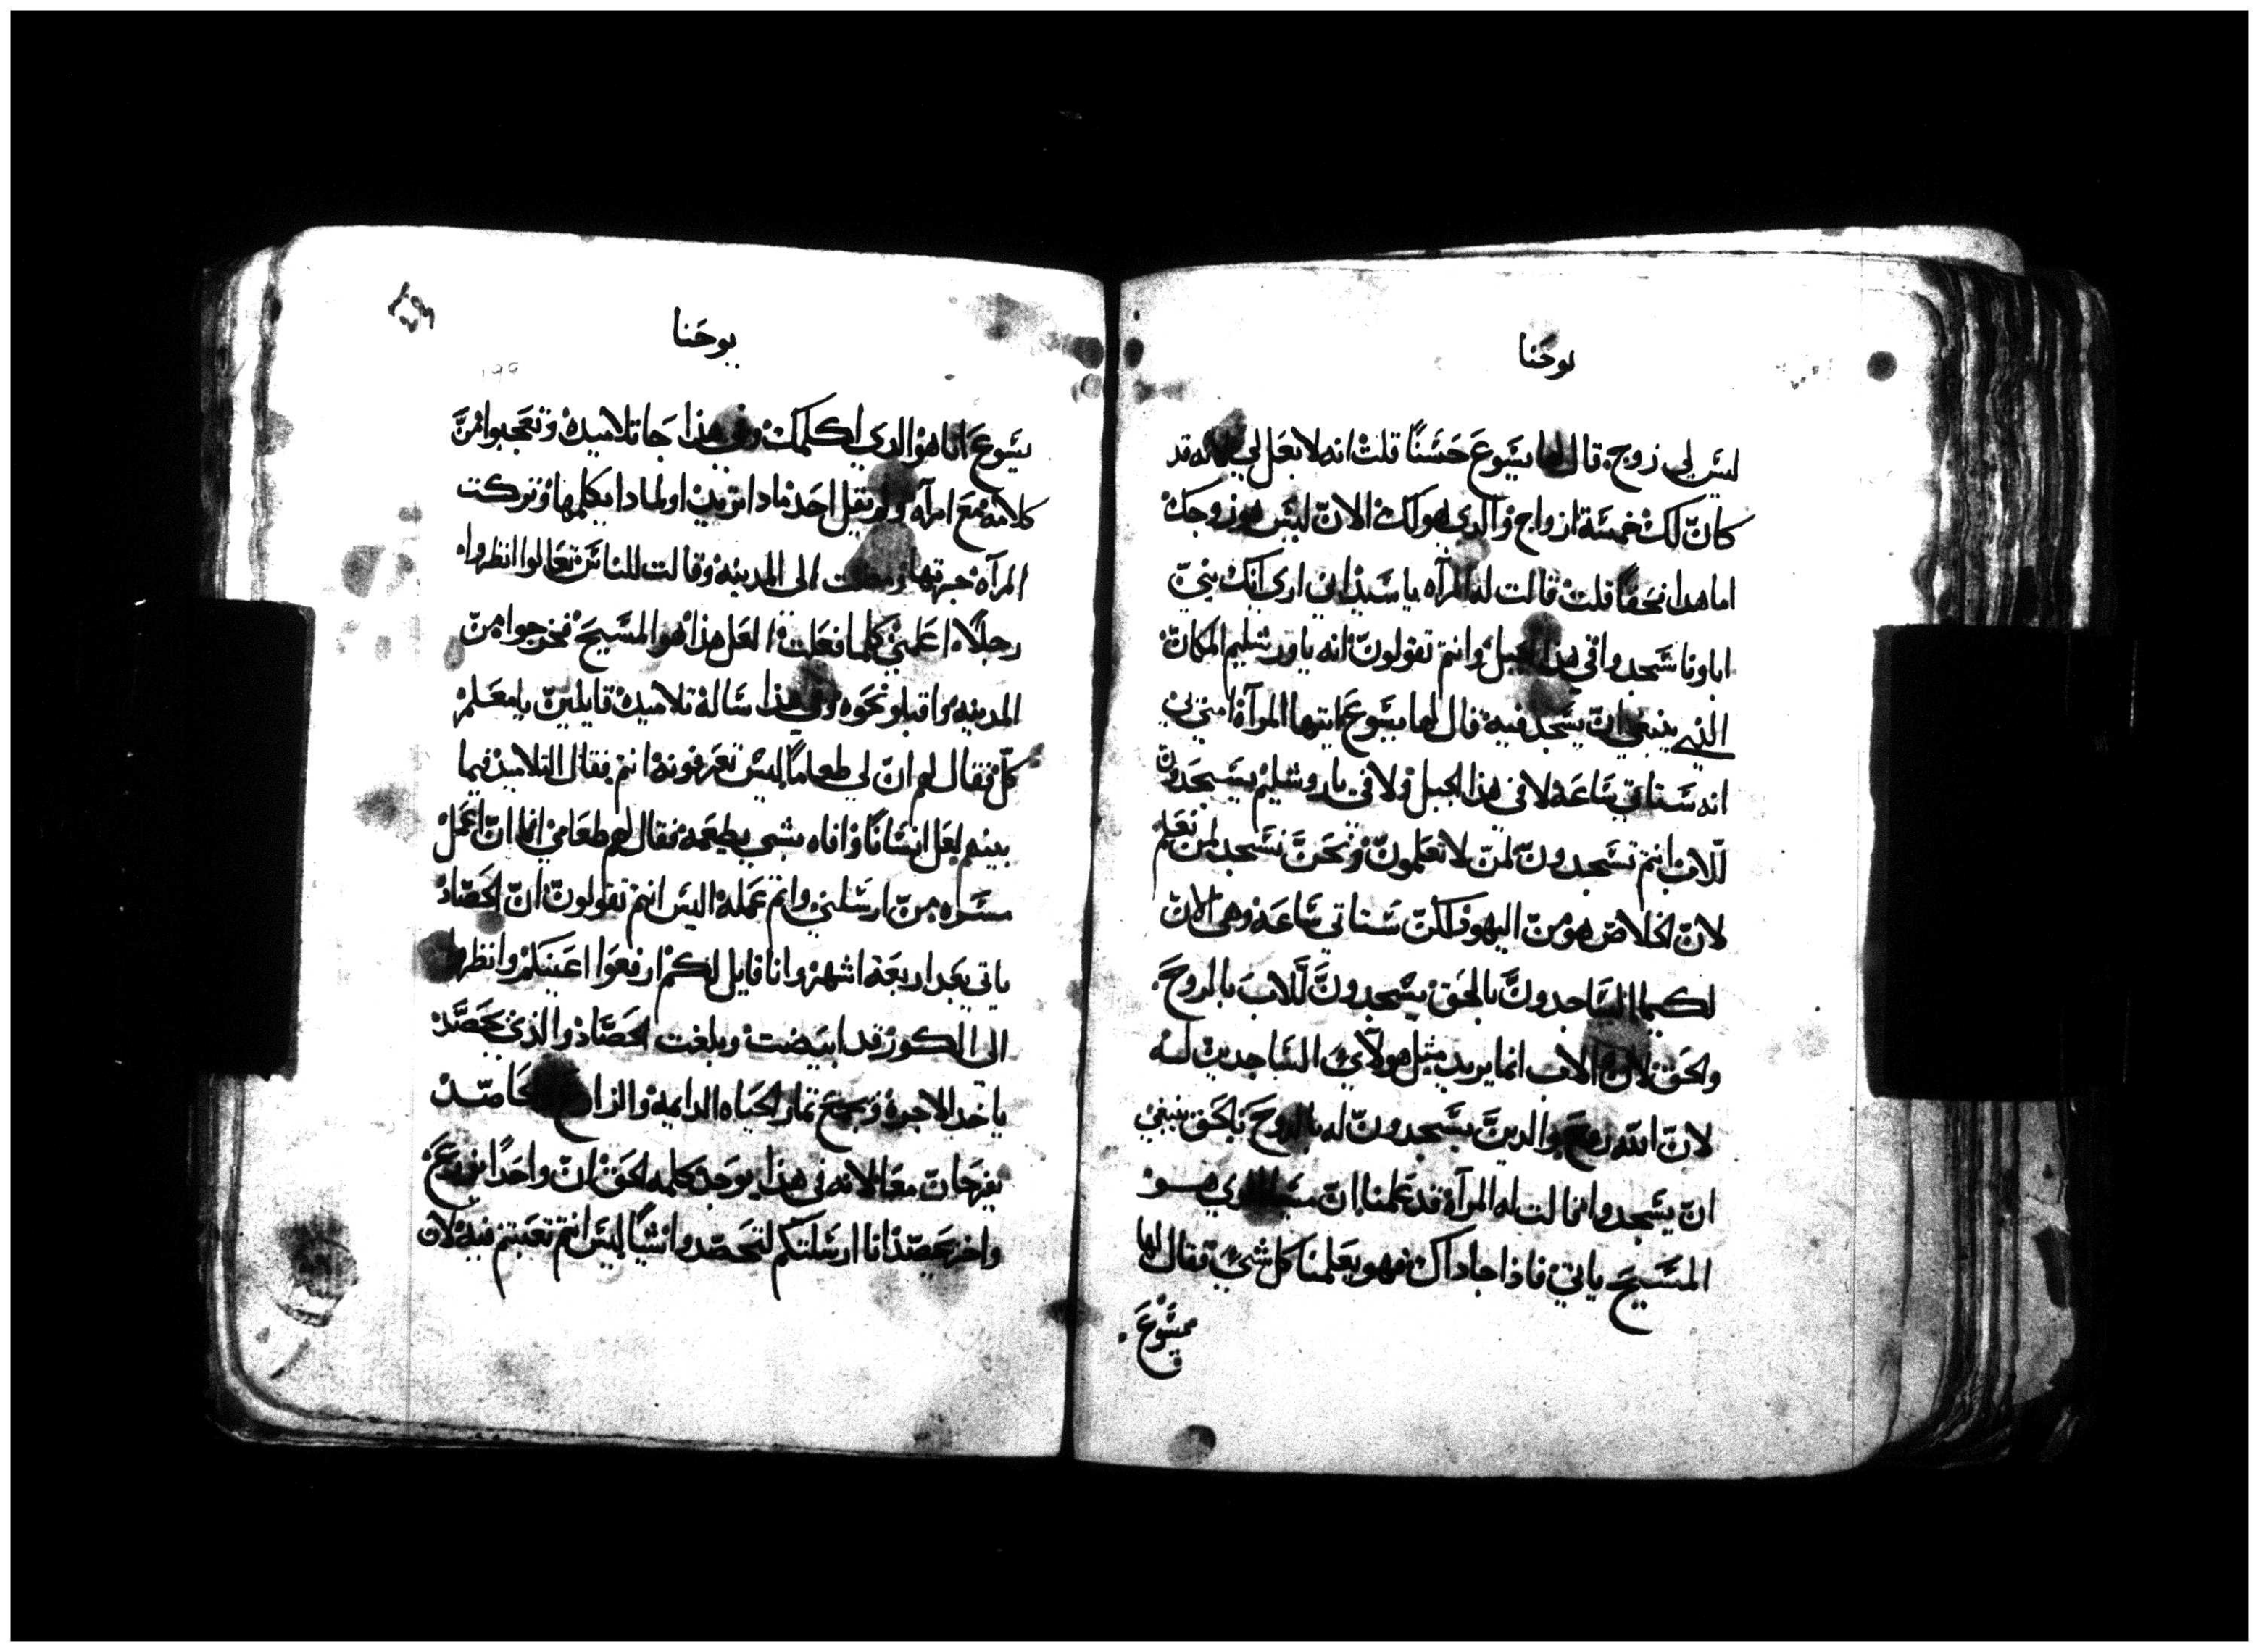 يوحنا
ليس لي زوج. قال لها يسوع حسنًا قلت انه لا بعل لي لانه قد
كان لك خمسة ازواج والدي هو لك الان ليس هو زوجك
اما هدا فحقًا قلت قالت له المرآه يا سيد اني ارى انك نبي
اباونا سجدوا في هذا الجبل وانتم تقولون انه ياورشليم المكان
الذي ينبغي ان يسجد فيه قال لها يسوع ايتها المرآة امني بي
انه ستاتي ساعة لا في هذا الجبل ولا في ياروشليم يسجدون
للاب انتم تسجدون لمن لا تعلمون ونحن نسجد لمن نعلم
لان الخلاص هو من اليهود لكن ستاتي ساعة وهي الان
لكيما الساجدون بالحق يسجدون للاب بالروح
والحق لان الاب انما يريد مثل هولآي الساجدين له
لان الله روح والدين يسجدون له بالروح والحق ينبغي
ان يسجدوا قالت له المرآة قد علمنا ان مسيا الدي هو
المسيح ياتي فاذا جا داك فهو يعلمنا كل شي فقال لها
يسوع
يوحنا
١٩٩
يسوع انا هو الدي اكلمك وفي هذا جا تلاميده وتعجبوا من
كلامه مع امرآه ولم يقل احد مادا تريد او لمادا يكلمها وتركت
المرآه جرتها ومضت الى المدينه وقالت للناس تعالوا انظروا
رجلًا اعلمني كلما فعلت العل هذا هو المسيح فخرجوا من
المدينه واقبلو نحوه وفي هذا ساله تلاميده قايلين يا معلم
كل فقال لهم ان لي طعامًا ليس تعرفونه انتم فقال التلاميد فيما
بينهم لعل انسانًا وافاه بشي يطعمه فقال لهم طعامي انا ان اعمل
مسره من ارسلني واتم عمله اليس انتم تقولون ان الحصاد
ياتي بعد اربعة اشهر وانا قايل لكم ارفعوا اعينكم وانظروا
الى الكور قد ابيضت وبلغت الحصاد والذي يحصد
ياخد الاجرة ويجمع ثمار الحياه الدايمه والزارع والحاصد
يفرحان معًا لانه في هذا يوجد كلمه الحق ان واحدًا يزرع
واخر يحصد انا ارسلتكم لتحصدوا شيًا ليس انتم تعبتم فيه لان